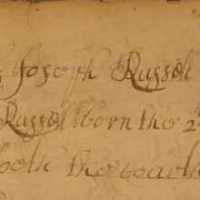 Joseph Russell
Russell born the 2
both the